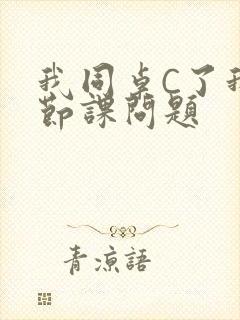 我同桌C了我
節課問題
青涼語